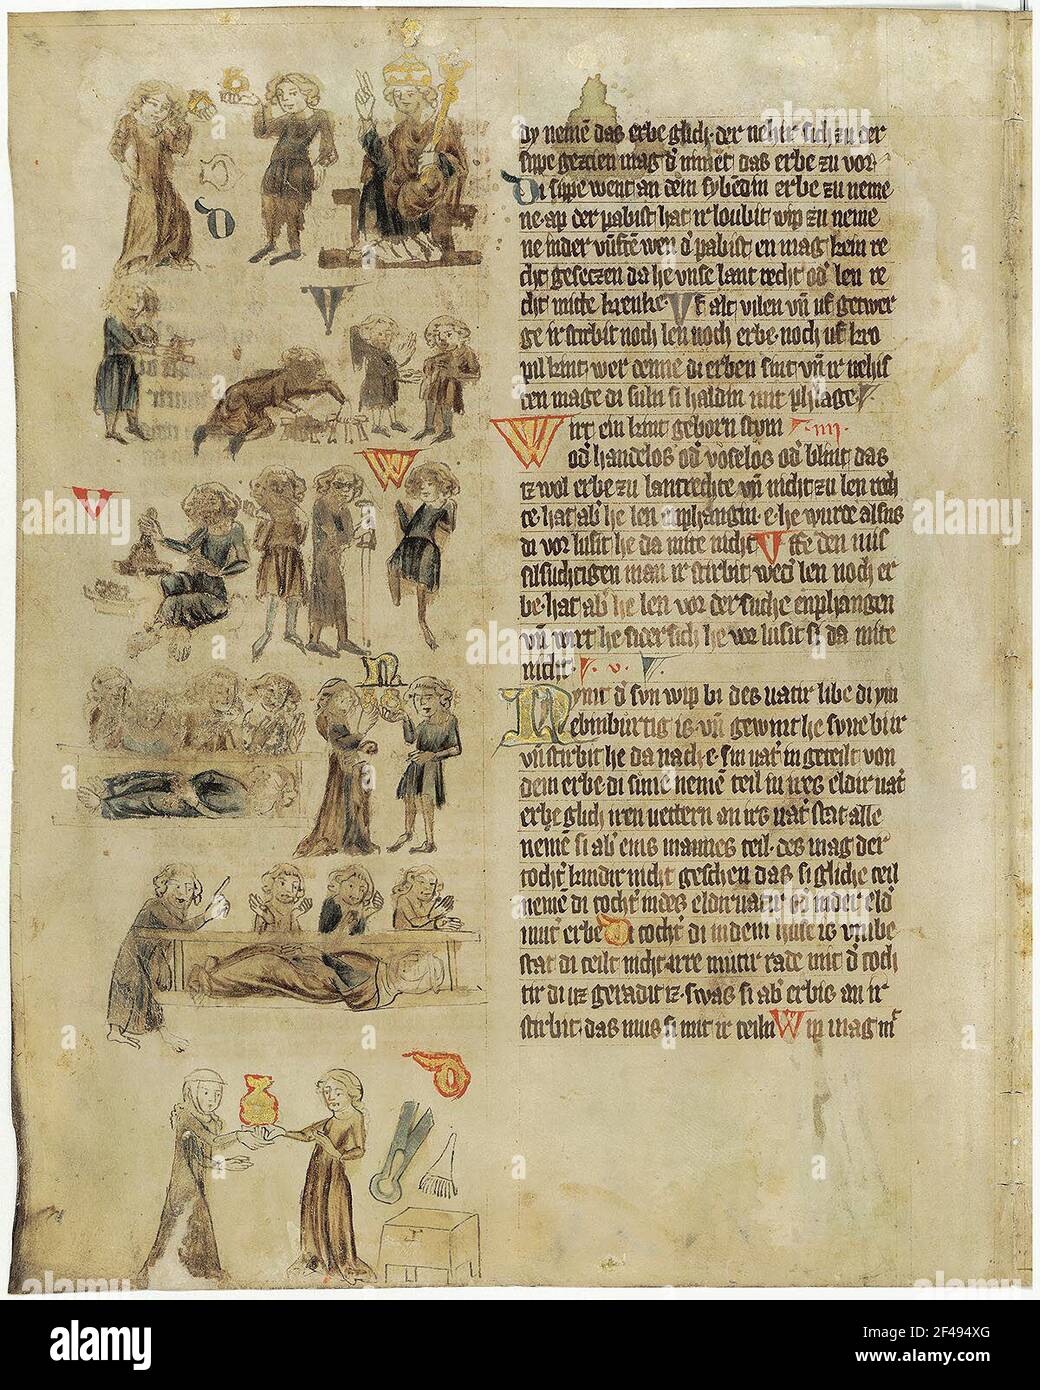 dy nemē das erbe glich · der nehir sich zu der
sippe geczien mag d' nimet das erbe zu vor
Di sippe went an dem sybēdin erbe zu neme
ne · ap der pabist hat ir loubit wip zu neme
ne in der vūftē wen d' pabist en mag kein re
cht geseczen da he vnse lant recht od' len re
cht mitte krenke · Vf alt vilen vn̄ uf getwer
ge ir stirbit noch len noch erbe · noch uf kro
pil kint wer denne di erben sint vn̄ ir nehis
ten mage di suln si haldin mit phlage ·
Wirt ein kint geborn stum iiii.
od' handelos od' vōselos od' blint das
iz wol erbe zu lantrechte vn̄ nicht zu len rech
te · hat ab' he len enphangin · e · he wurde alsus
di vor lusit he da mite nicht Vffe den mis
silsuchtigen man ir stirbit wed' len noch er
be · hat ab' he len vor der suche enphangen
vn̄ wirt he sicer sich he vor lusit si da mite
nicht · v.
Nymit d' svn wip bi des vatir libe di ym
ebinburtig is vn̄ gewint he svne bi ir
vn̄ stirbit he da nach e · sin vat' in geteilt von
dem erbe di sune nemē teil in ires eldir vat'
erbe glich iren vettern an irs vat' stat alle
nemē si ab' eins mannes teil · des mag der
tocht' kindir nicht geschen das si gliche teil
nemē di tocht' in des eldir vatir od' in der eld'
mut' erbe Di tocht' di in dem huse is vnibe
stat di teilt nicht irre mutir rade mit d' toch
tir di uz geradit iz · swas si ab' erbis an ir
stirbit · das mus si mit ir teiln Wip mag m̄
D
V
W
V
N
D
alamy
Image ID: 2F494XG
www.alamy.com